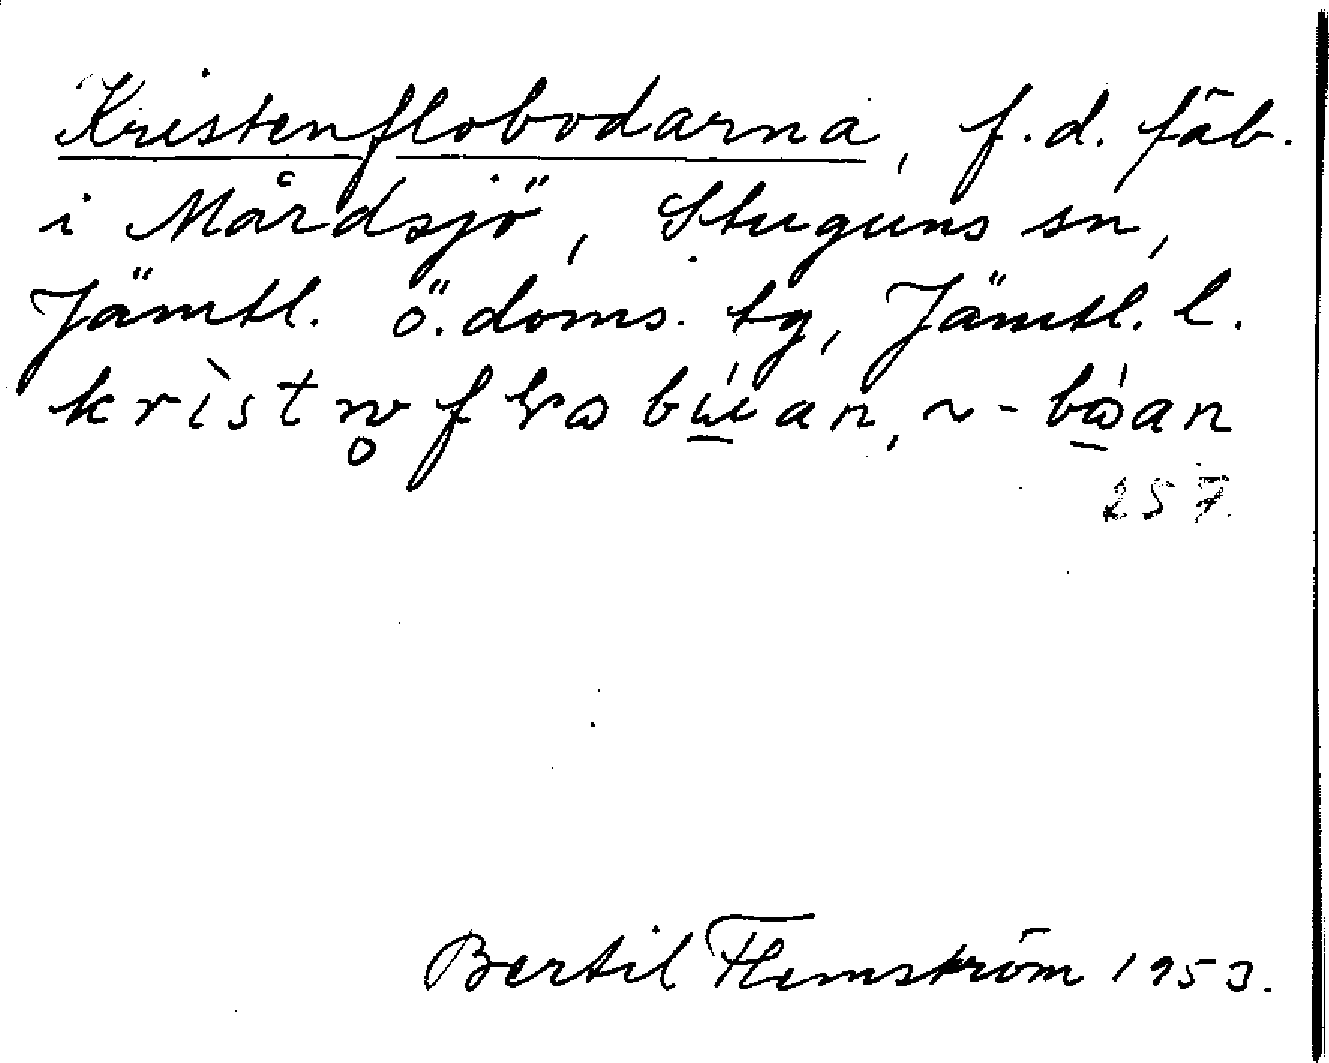 Kristenflobodarna, f.d. fäb.
i Mårdsjö, Stuguns sn,
Jämtl. ö. doms. tg, Jämtl. l.
257
Bertil Flemström 1953.